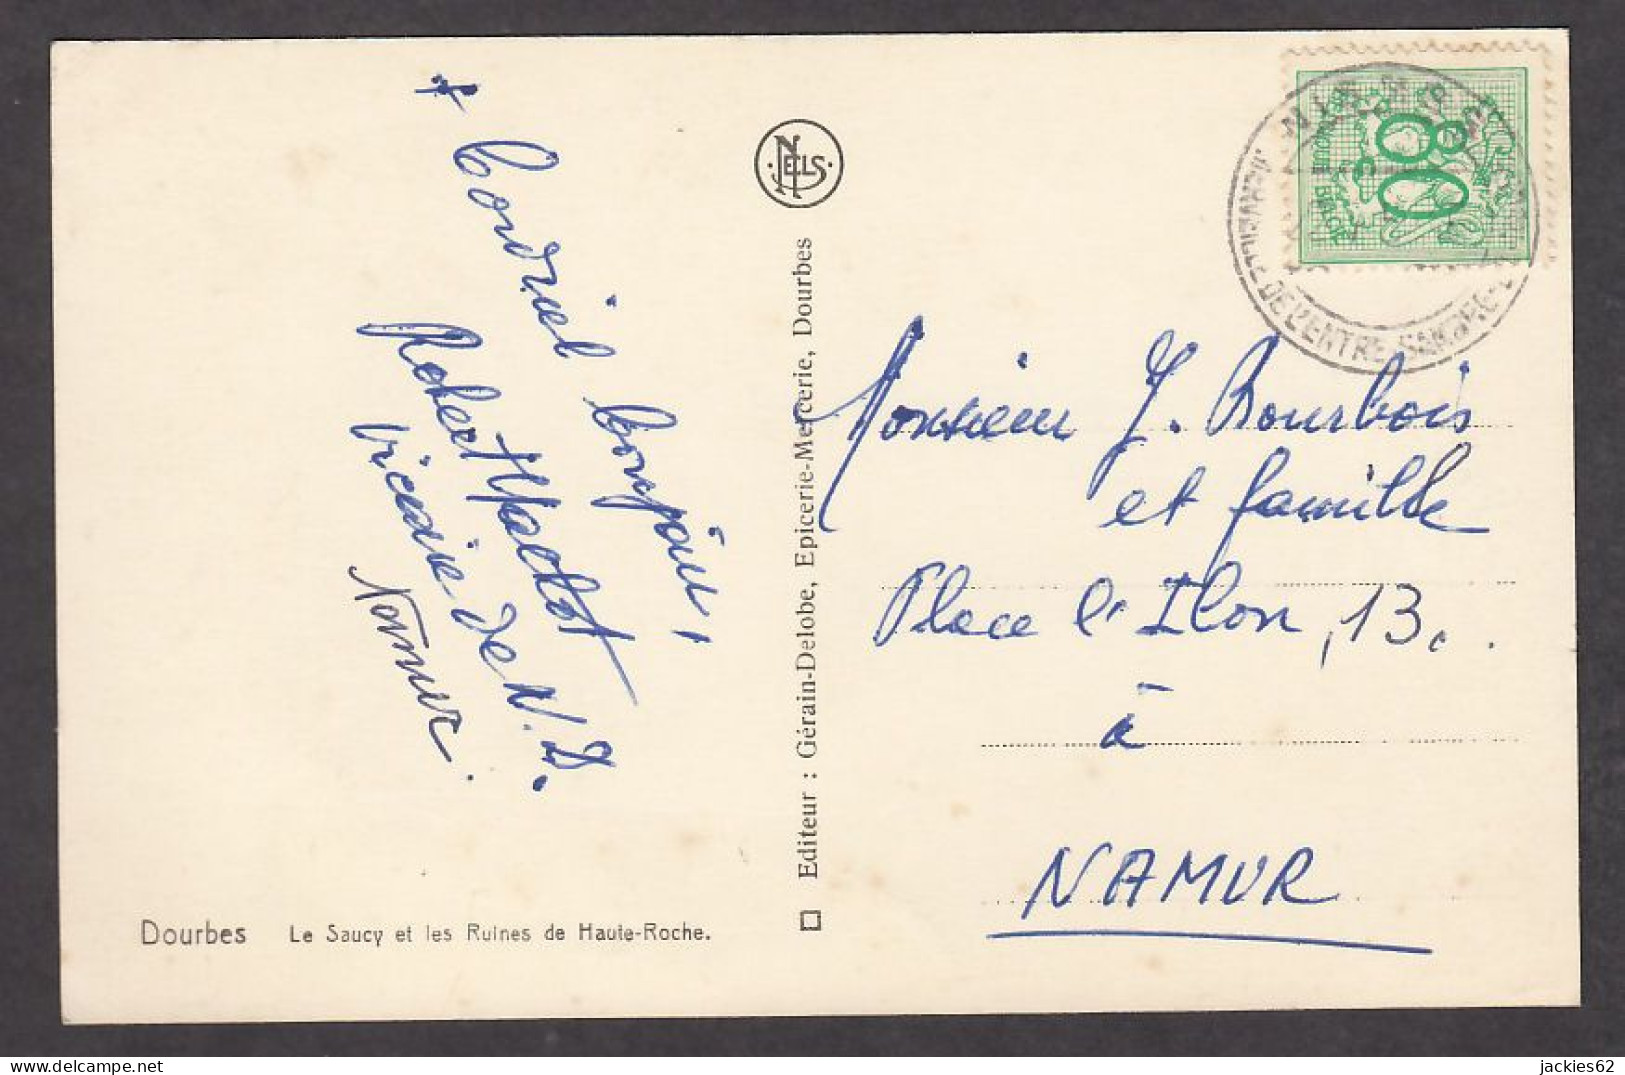 * Cordial bonjour,
Robert Malbot
Vicaire de N.D.
Namur.
Dourbes Le Saucy et les Ruines de Haute-Roche.
NELS
Editeur : Gérain-Delobe, Epicerie-Mercerie, Dourbes
BELGIE
DE L'ENTRE-SAMBRE
Monsieur J. Bourbois
et famille
Place l'Ilon, 13.
à
NAMUR
jackies62